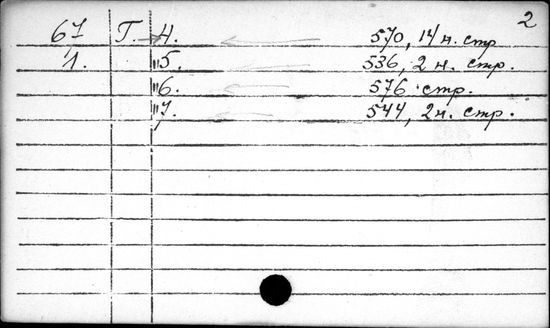 2
61 Т. 4. 570, 14 н. стр
1. " 5. 536, 2 н. стр.
" 6. 576 стр.
" 7. 544, 2 н. стр.